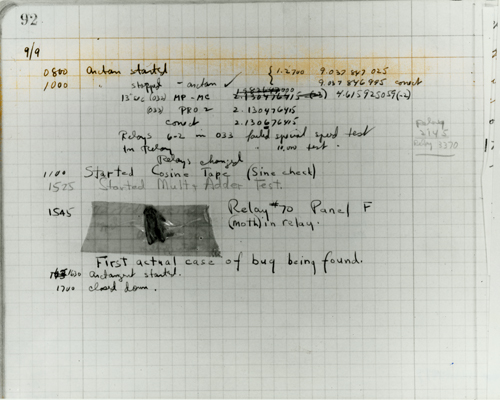 92
9/9
0800 antan started
1000 " stopped - antan ✓ { 1.2700 9.037 847 025
9.037 846 995 correct
13"UC (032) MP-MC 2.130476415 (-3) 4.615925059(-2)
(033) PRO 2 2.130476415
correct 2.130676415
Relays 6-2 in 033 failed special speed test
in relay " 10,000 test.
Relay
2145
Relay 3370
Relays changed
1100 Started Cosine Tape (Sine check)
1525 Started Mult+Adder Test.
1545 Relay #70 Panel F
(moth) in relay.
First actual case of bug being found.
1630 antangent started.
1700 closed down.